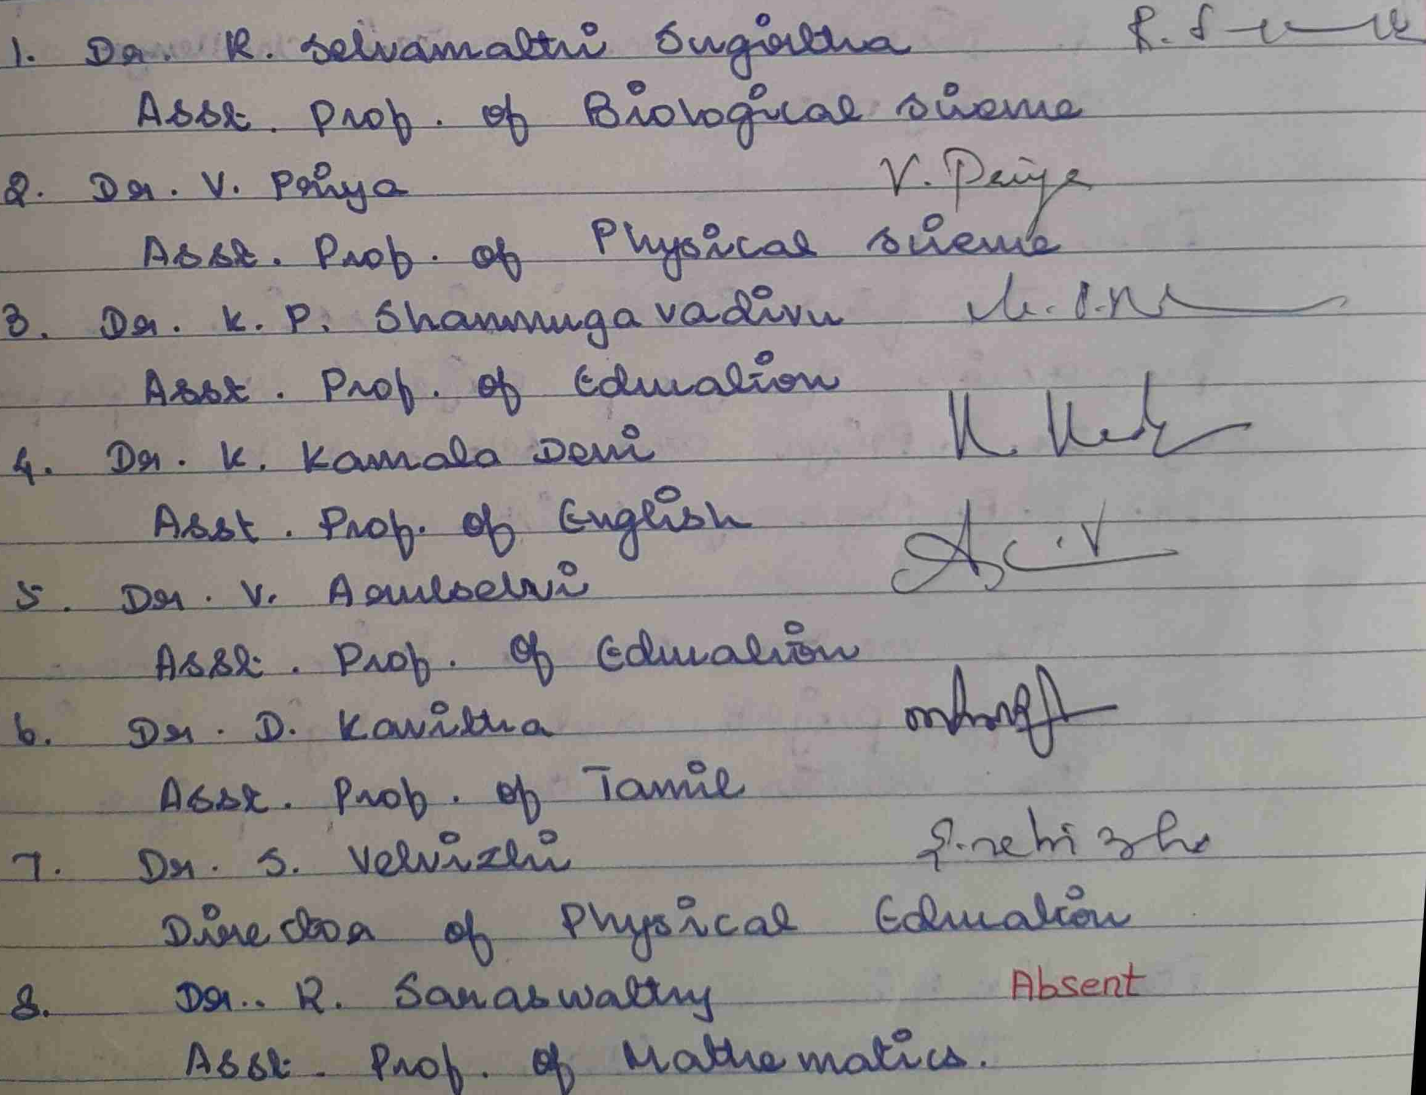 1. Dr. R. Selvamathi Sugirtha
Asst. Prof. of Biological Science
2. Dr. V. Priya V. Priya
Asst. Prof. of Physical Science
3. Dr. K. P. Shanmugavadivu
Asst. Prof. of Education
4. Dr. K. Kamala Devi
Asst. Prof. of English
5. Dr. V. Arulselvi
Asst. Prof. of Education
6. Dr. D. Kavitha
Asst. Prof. of Tamil
7. Dr. S. Velvizhi
Director of Physical Education
8. Dr.. R. Saraswathy Absent
Asst. Prof. of Mathematics.